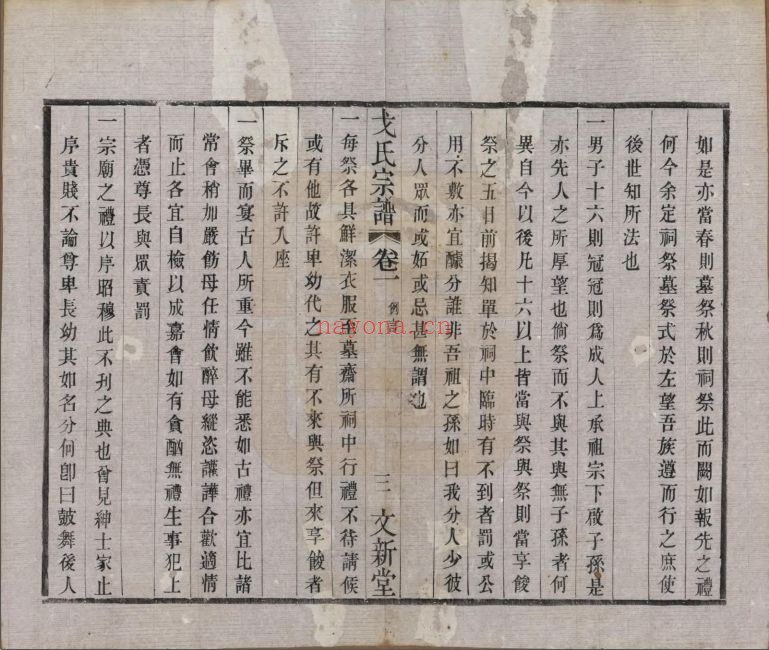 如是亦當春則墓祭秋則祠祭此而闕如報先之禮
何今余定祠祭墓祭式於左望吾族遵而行之庶使
後世知所法也
一男子十六則冠冠則爲成人上承祖宗下啟子孫是
亦先人之所厚望也倘祭而不與其與無子孫者何
異自今以後凡十六以上皆當與祭與祭則當享餕
祭之五日前揭知單於祠中臨時有不到者罰或公
用不敷亦宜醵分誰非吾祖之孫如曰我分人少彼
分人眾而或妬或忌甚無謂也
戈氏宗譜 卷一 例言 三 文新堂
一每祭各具鮮潔衣服至墓齋所祠中行禮不待請候
或有他故許卑幼代之其有不來與祭但來享餕者
斥之不許入座
一祭畢而宴古人所重今雖不能悉如古禮亦宜比諸
常會稍加嚴飭毋任情飲醉毋縱恣讙譁合歡適情
而止各宜自檢以成嘉會如有貪酗無禮生事犯上
者憑尊長與眾責罰
一宗廟之禮以序昭穆此不刊之典也曾見紳士家止
序貴賤不論尊卑長幼其如名分何卽曰鼓舞後人
nayona.cn